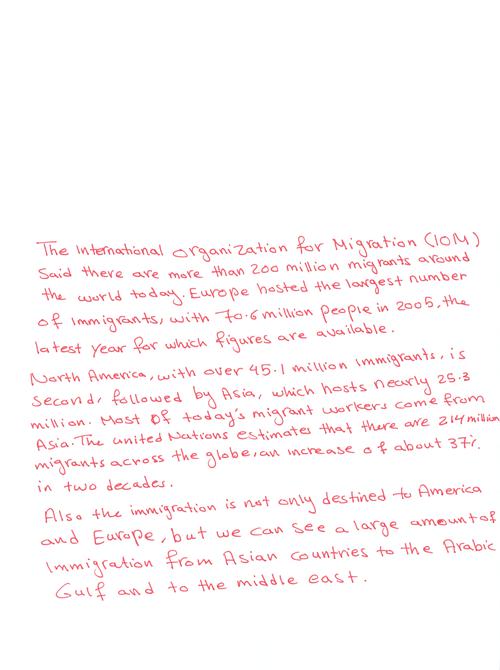 The International organization for Migration (IOM)
Said there are more than 200 million migrants around
the world today. Europe hosted the largest number
of Immigrants, with 70.6 million people in 2005, the
latest year for which figures are available.
North America, with over 45.1 million immigrants, is
Second, followed by Asia, which hosts nearly 25.3
million. Most of today's migrant workers come from
Asia. The united Nations estimates that there are 214 million
migrants across the globe, an increase of about 37%
in two decades.
Also the immigration is not only destined to America
and Europe, but we can see a large amount of
Immigration from Asian countries to the Arabic
Gulf and to the middle east.